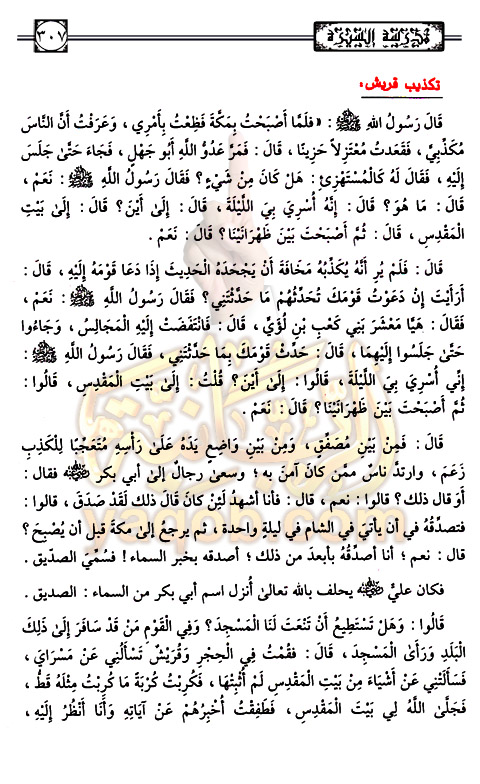 مدرسة السيرة
٣٠٧
تكذيب قريش:
قَالَ رَسُولُ اللهِ ﷺ : «فَلَمَّا أَصْبَحْتُ بِمَكَّةَ فَظِعْتُ بِأَمْرِي ، وَعَرَفْتُ أَنَّ النَّاسَ
مُكَذِّبِيَّ ، فَقَعَدتُ مُعْتَزِلاً حَزِينًا ، قَالَ : فَمَرَّ عَدُوُّ اللَّهِ أَبُو جَهْلٍ ، فَجَاءَ حَتَّىٰ جَلَسَ
إِلَيْهِ ، فَقَالَ لَهُ كَالْمُسْتَهْزِئِ : هَلْ كَانَ مِنْ شَيْءٍ؟ فَقَالَ رَسُولُ اللَّهِ ﷺ : نَعَمْ ،
قَالَ : مَا هُوَ؟ قَالَ : إِنَّهُ أُسْرِيَ بِيَ اللَّيْلَةَ ، قَالَ : إِلَىٰ أَيْنَ؟ قَالَ : إِلَىٰ بَيْتِ
الْمَقْدِسِ ، قَالَ : ثُمَّ أَصْبَحْتَ بَيْنَ ظَهْرَانَيْنَا؟ قَالَ : نَعَمْ .
قَالَ : فَلَمْ يُرِ أَنَّهُ يُكَذِّبُهُ مَخَافَةَ أَنْ يَجْحَدَهُ الْحَدِيثَ إِذَا دَعَا قَوْمَهُ إِلَيْهِ ، قَالَ :
أَرَأَيْتَ إِنْ دَعَوْتُ قَوْمَكَ تُحَدِّثُهُمْ مَا حَدَّثْتَنِي؟ فَقَالَ رَسُولُ اللَّهِ ﷺ : نَعَمْ ،
فَقَالَ : هَيَّا مَعْشَرَ بَنِي كَعْبِ بْنِ لُؤَيٍّ ، قَالَ : فَانْتَفَضَتْ إِلَيْهِ الْمَجَالِسُ ، وَجَاءُوا
حَتَّىٰ جَلَسُوا إِلَيْهِمَا ، قَالَ : حَدِّثْ قَوْمَكَ بِمَا حَدَّثْتَنِي ، فَقَالَ رَسُولُ اللَّهِ ﷺ :
إِنِّي أُسْرِيَ بِيَ اللَّيْلَةَ ، قَالُوا : إِلَىٰ أَيْنَ؟ قُلْتُ : إِلَىٰ بَيْتِ الْمَقْدِسِ ، قَالُوا :
ثُمَّ أَصْبَحْتَ بَيْنَ ظَهْرَانَيْنَا؟ قَالَ : نَعَمْ .
قَالَ : فَمِنْ بَيْنِ مُصَفِّقٍ ، وَمِنْ بَيْنِ وَاضِعٍ يَدَهُ عَلَىٰ رَأْسِهِ مُتَعَجِّبًا لِلْكَذِبِ
زَعَمَ ، وارتدَّ ناسٌ ممَّن كانَ آمنَ به ؛ وسعىٰ رجالٌ إلىٰ أبي بكر ﷺ فقال :
أوَ قال ذلك؟ قالوا : نعم ، قال : فأنا أشهدُ لَئِنْ كانَ قال ذلك لَقَدْ صَدَقَ ، قالوا :
فتصدِّقُهُ في أن يأتيَ في الشام في ليلةٍ واحدة ، ثم يرجعُ إلىٰ مكةَ قبل أن يُصْبِحَ؟
قال : نعم ؛ أنا أصدِّقُهُ بأبعدَ من ذلك ؛ أصدقه بخبر السماء! فسُمِّيَ الصدّيق .
فكان عليٌّ ﷺ يحلف بالله تعالىٰ أُنزل اسم أبي بكر من السماء : الصديق .
قَالُوا : وَهَلْ تَسْتَطِيعُ أَنْ تَنْعَتَ لَنَا الْمَسْجِدَ؟ وَفِي الْقَوْمِ مَنْ قَدْ سَافَرَ إِلَىٰ ذَلِكَ
الْبَلَدِ وَرَأَىٰ الْمَسْجِدَ ، قَالَ : فَقُمْتُ فِي الْحِجْرِ وَقُرَيْشٌ تَسْأَلُنِي عَنْ مَسْرَايَ ،
فَسَأَلَتْنِي عَنْ أَشْيَاءَ مِنْ بَيْتِ الْمَقْدِسِ لَمْ أُثْبِتْهَا ، فَكُرِبْتُ كُرْبَةً مَا كُرِبْتُ مِثْلَهُ قَطُّ ،
فَجَلَّىٰ اللَّهُ لِي بَيْتَ الْمَقْدِسِ ، فَطَفِقْتُ أُخْبِرُهُمْ عَنْ آيَاتِهِ وَأَنَا أَنْظُرُ إِلَيْهِ ،
yaqob.com